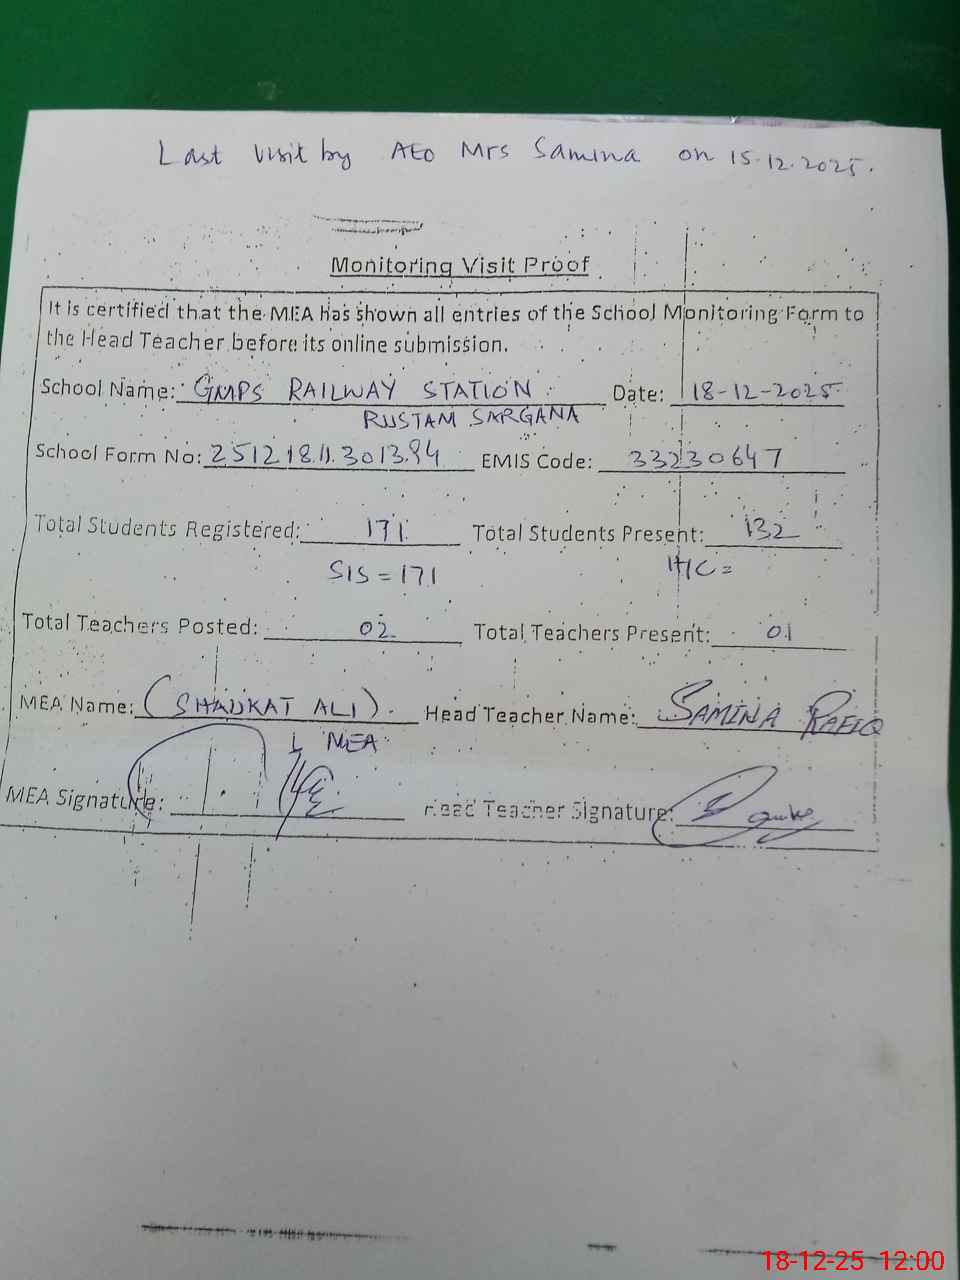 Last visit by AEO Mrs Samina on 15.12.2025.
Monitoring Visit Proof
It is certified that the MEA has shown all entries of the School Monitoring Form to
the Head Teacher before its online submission.
School Name: GMPS RAILWAY STATION Date: 18-12-2025
RUSTAM SARGANA
School Form No: EMIS Code: 33230647
Total Students Registered: 171 Total Students Present: 132
SIS = 171 H/C =
Total Teachers Posted: 02 Total Teachers Present: 01
MEA Name: (SHAUKAT ALI). Head Teacher Name: SAMINA RAFIQ
MEA
MEA Signature: Head Teacher Signature:
18-12-25 12:00